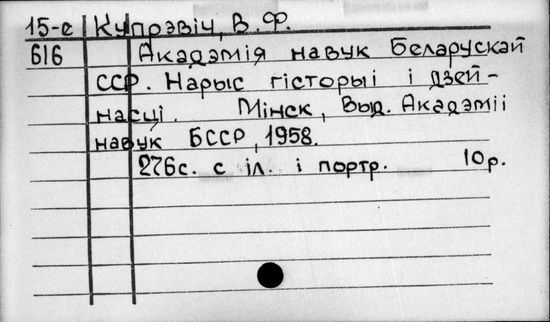 15-е Купрэвіч, В. Ф.
616 Акадэмія навук Беларускай
ССР. Нарыс гісторыі і дзей-
насці. Мінск, Выд. Акадэміі
навук БССР, 1958.
276с. с іл. і портр. 10р.